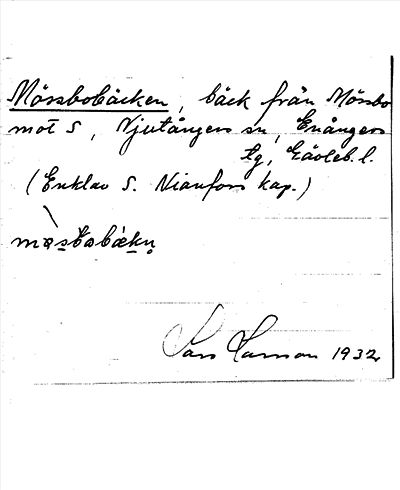 Mössbobäcken, bäck från Mössbo
mot S, Njutångers sn, Enångers
tg, Gävleb. l.
(Enklav S. Nianfors kap.)
Lars Larsson 1932